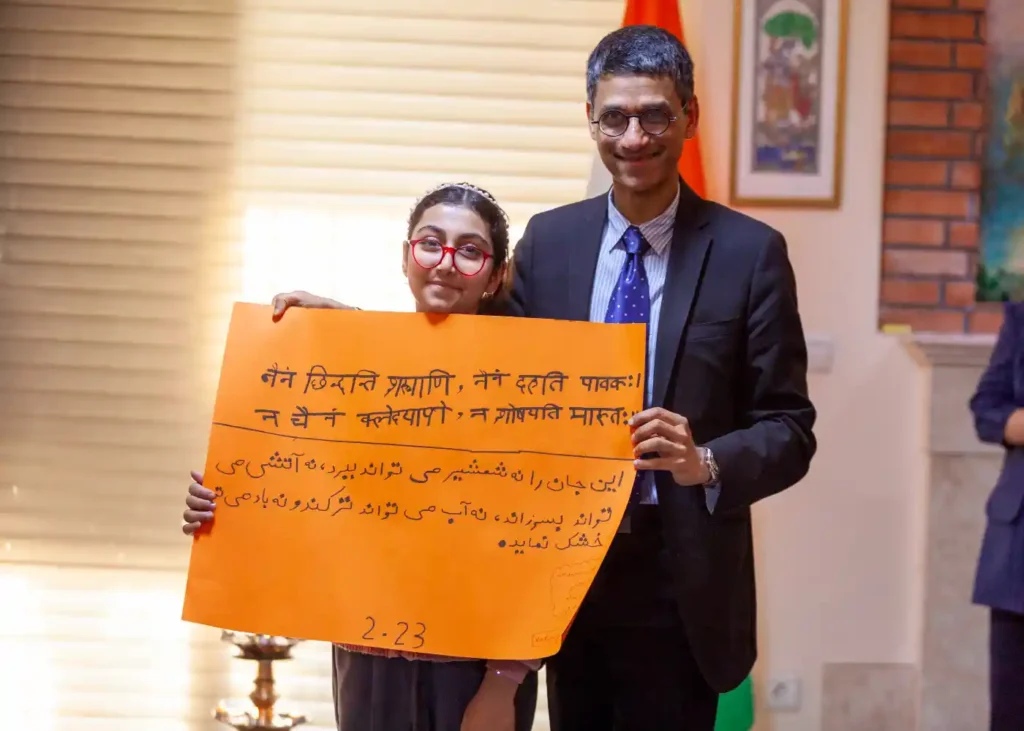 नैनं छिन्दन्ति शस्त्राणि, नैनं दहति पावकः।
न चैनं क्लेदयापो, न शोषयति मारुतः॥
این جان را نه شمشیر می تواند ببرد، نه آتشی می
تواند بسوزاند، نه آب می تواند تر کند و نه باد می تو
خشک نماید.
2.23